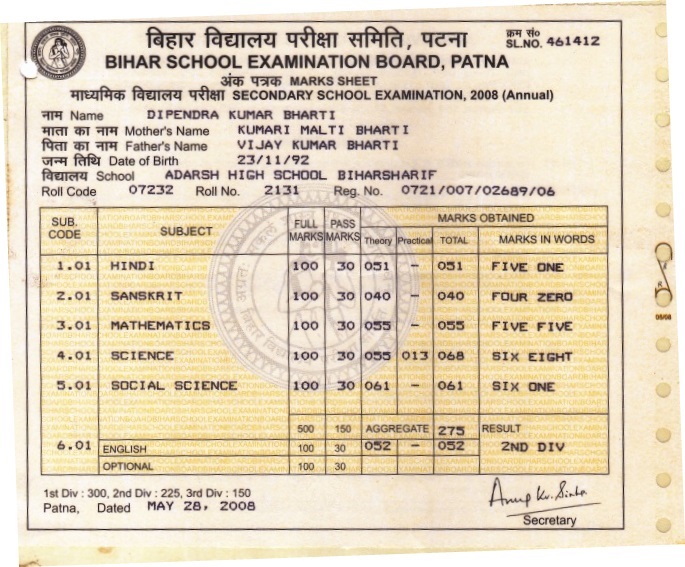 बिहार विद्यालय परीक्षा समिति, पटना
क्रम सं०
SL.NO. 461412
BIHAR SCHOOL EXAMINATION BOARD, PATNA
अंक पत्रक MARKS SHEET
माध्यमिक विद्यालय परीक्षा SECONDARY SCHOOL EXAMINATION, 2008 (Annual)
नाम Name DIPENDRA KUMAR BHARTI
माता का नाम Mother's Name KUMARI MALTI BHARTI
पिता का नाम Father's Name VIJAY KUMAR BHARTI
जन्म तिथि Date of Birth 23/11/92
विद्यालय School ADARSH HIGH SCHOOL BIHARSHARIF
Roll Code 07232 Roll No. 2131 Reg. No. 0721/007/02689/06
SUB. CODE SUBJECT FULL MARKS PASS MARKS MARKS OBTAINED
Theory Practical TOTAL MARKS IN WORDS
1.01 HINDI 100 30 051 - 051 FIVE ONE
2.01 SANSKRIT 100 30 040 - 040 FOUR ZERO
3.01 MATHEMATICS 100 30 055 - 055 FIVE FIVE
4.01 SCIENCE 100 30 055 013 068 SIX EIGHT
5.01 SOCIAL SCIENCE 100 30 061 - 061 SIX ONE
500 150 AGGREGATE 275 RESULT
6.01 ENGLISH 100 30 052 - 052 2ND DIV
OPTIONAL 100 30
1st Div : 300, 2nd Div : 225, 3rd Div : 150
Patna, Dated MAY 28, 2008
Anup Kr. Sinha
Secretary